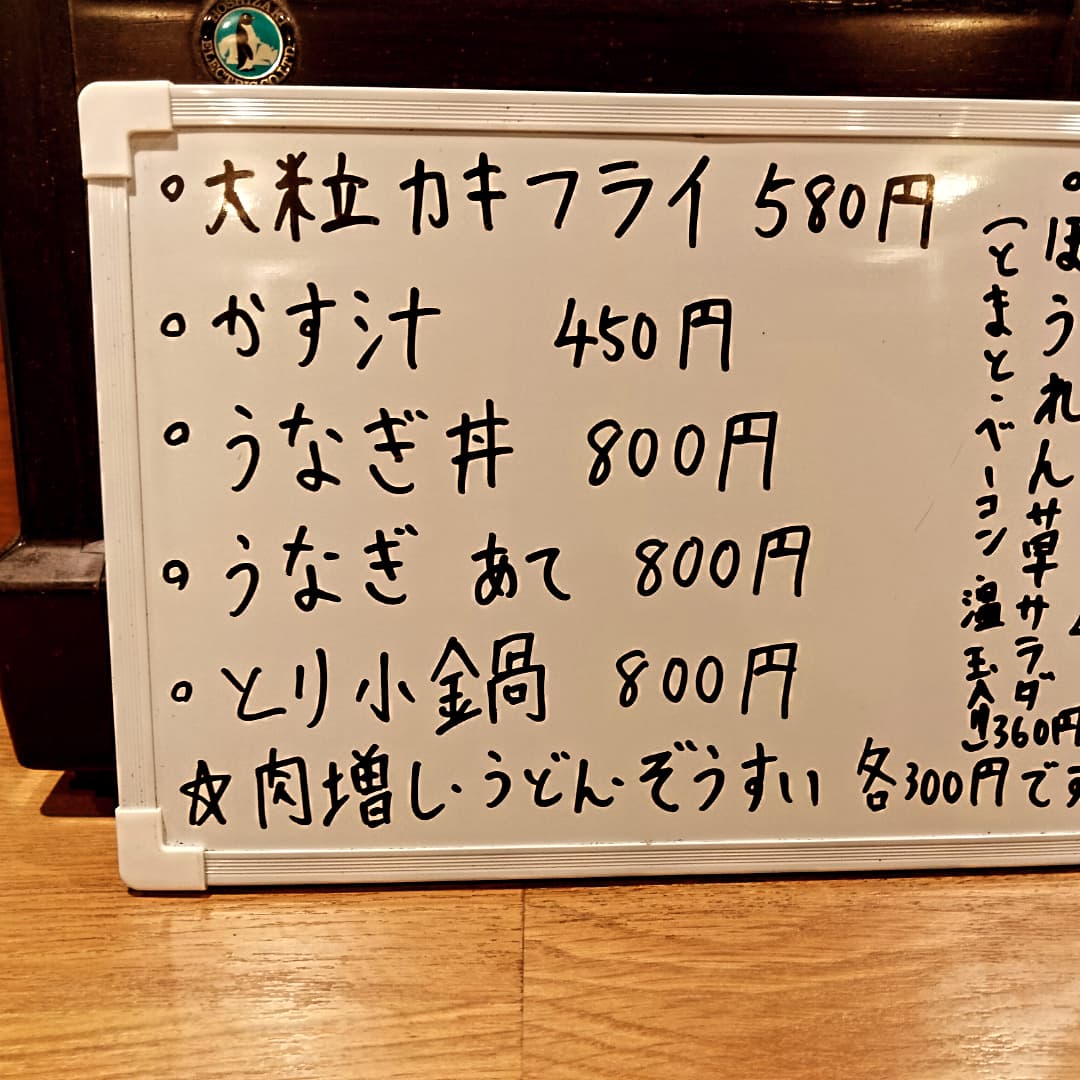 HOSHIZAKI
ELECTRIC CO., LTD.
○大粒カキフライ 580円
○かす汁 450円
○うなぎ丼 800円
○うなぎ あて 800円
○とり小鍋 800円
☆肉増し・うどん・ぞうすい 各300円です
ほうれん草サラダ
(とまと・ベーコン・温玉入り) 360円